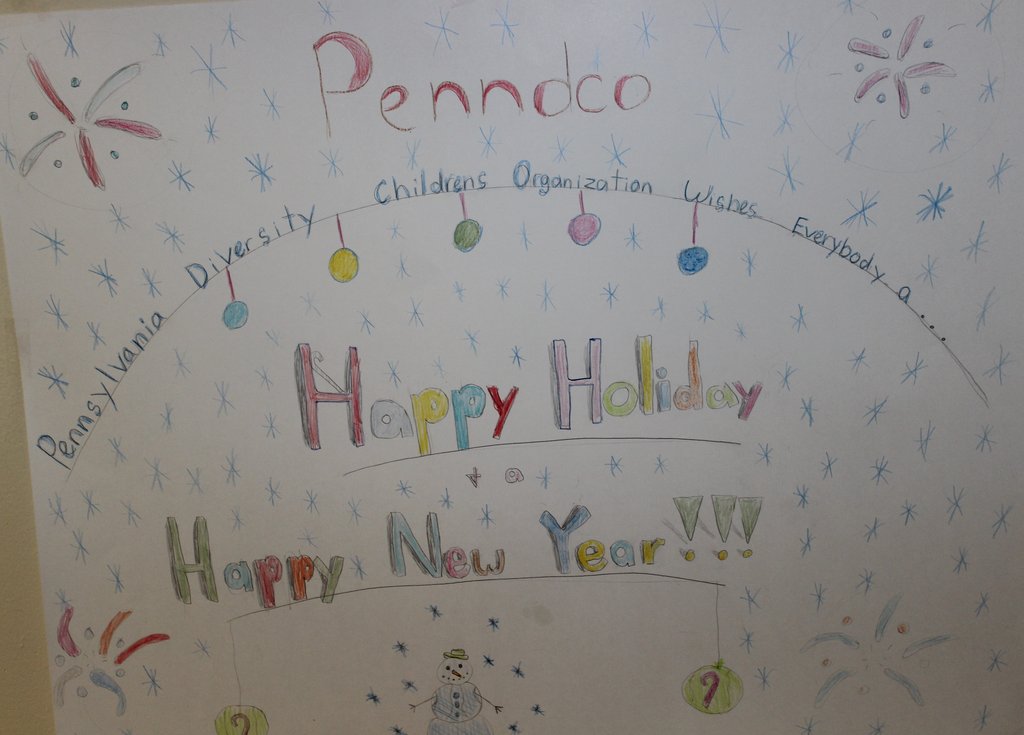 Penndco
Pennsylvania Diversity Childrens Organization Wishes Everybody a...
Happy Holiday
+ a
Happy New Year!!!